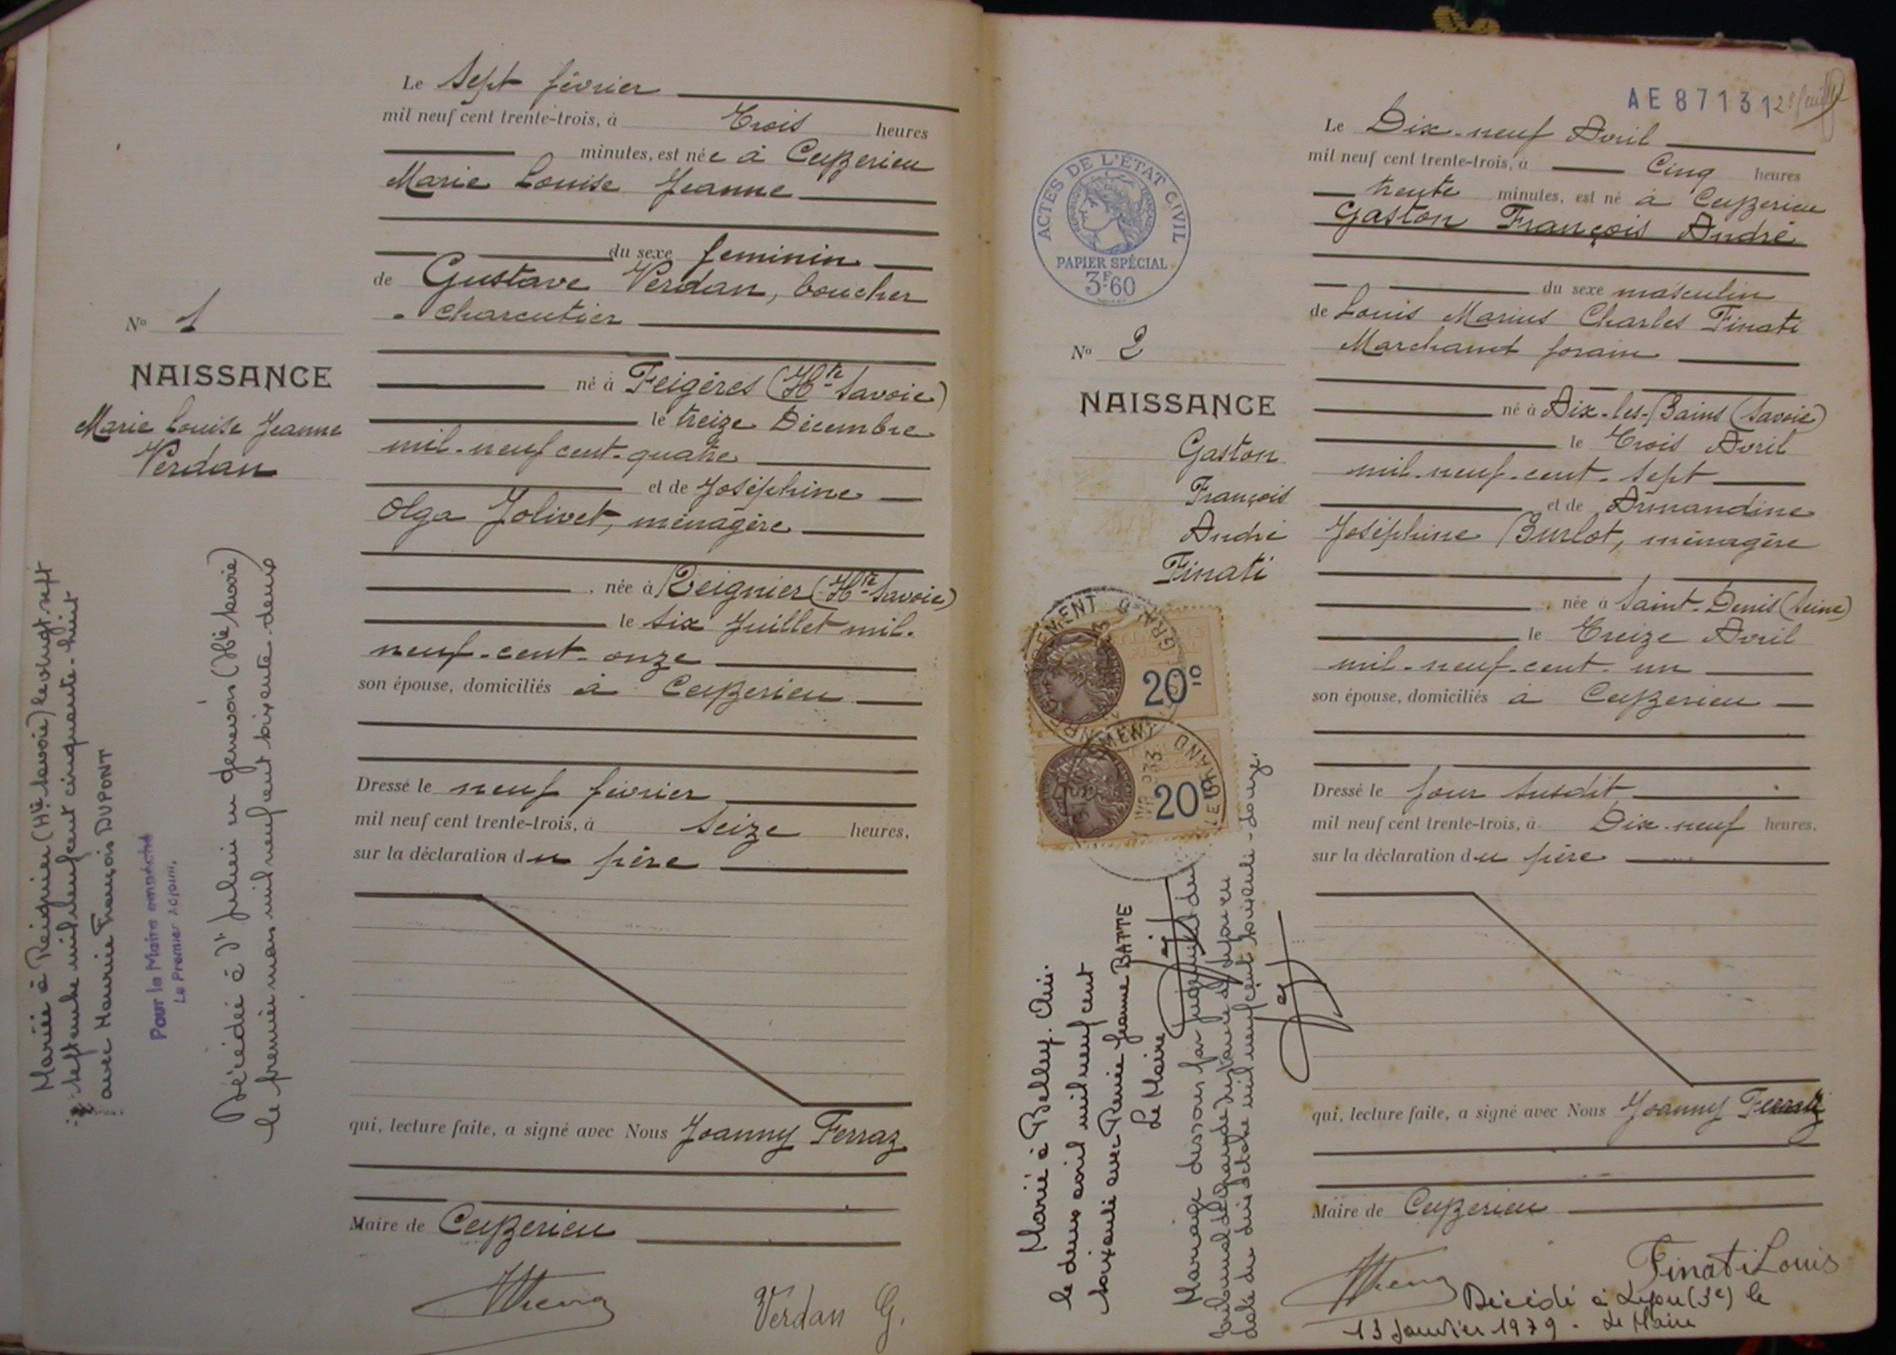 Le Sept février
mil neuf cent trente-trois, à Trois heures
minutes, est née à Ceyzerieu
Marie Louise Jeanne
du sexe feminin
de Gustave Verdan, boucher
charcutier
né à Feigères (Hte Savoie)
le treize Décembre
mil-neuf cent-quatre
et de Joséphine
Olga Jolivet, ménagère
née à Reignier (Hte Savoie)
le six Juillet mil-
neuf-cent-onze
son épouse, domiciliés à Ceyzerieu
Dressé le neuf février
mil neuf cent trente-trois, à seize heures,
sur la déclaration du père
qui, lecture faite, a signé avec Nous Joanny Ferraz
Maire de Ceyzerieu
Verdan G.
No 1
NAISSANCE
Marie Louise Jeanne
Verdan
Mariée à Reignier (Hte Savoie) le vingt-sept
septembre mil neuf cent cinquante-huit
avec Maurice François DUPONT
Pour le Maire empêché
Le Premier Adjoint,
Décédée à St Julien en genevois (Hte Savoie)
le premier mars mil neuf cent soixante-deux
AE 87131
Le Dix-neuf Avril
mil neuf cent trente-trois, à Cinq heures
trente minutes, est né à Ceyzerieu
Gaston François André
du sexe masculin
de Louis Marius Charles Finati
Marchand forain
né à Aix-les-Bains (Savoie)
le Trois Avril
mil-neuf-cent-sept
et de Armandine
Joséphine Burlot, ménagère
née à Saint-Denis (Seine)
le Treize Avril
mil-neuf-cent-un
son épouse, domiciliés à Ceyzerieu
Dressé le jour susdit
mil neuf cent trente-trois, à Dix-neuf heures,
sur la déclaration du père
qui, lecture faite, a signé avec Nous Joanny Ferraz
Maire de Ceyzerieu
Finati Louis
Décédé à Lyon (3e) le
13 Janvier 1979. Le Maire
ACTES DE L'ÉTAT CIVIL
PAPIER SPÉCIAL
3F60
No 2
NAISSANCE
Gaston
François
André
Finati
20c
20c
Marié à Belley. Ain.
le deux avril mil neuf cent
soixante avec Renée Jeanne BATTE
Le Maire
Mariage dissous par jugement du
tribunal de grande instance de Lyon en
date du dix octobre mil neuf cent soixante-douze.